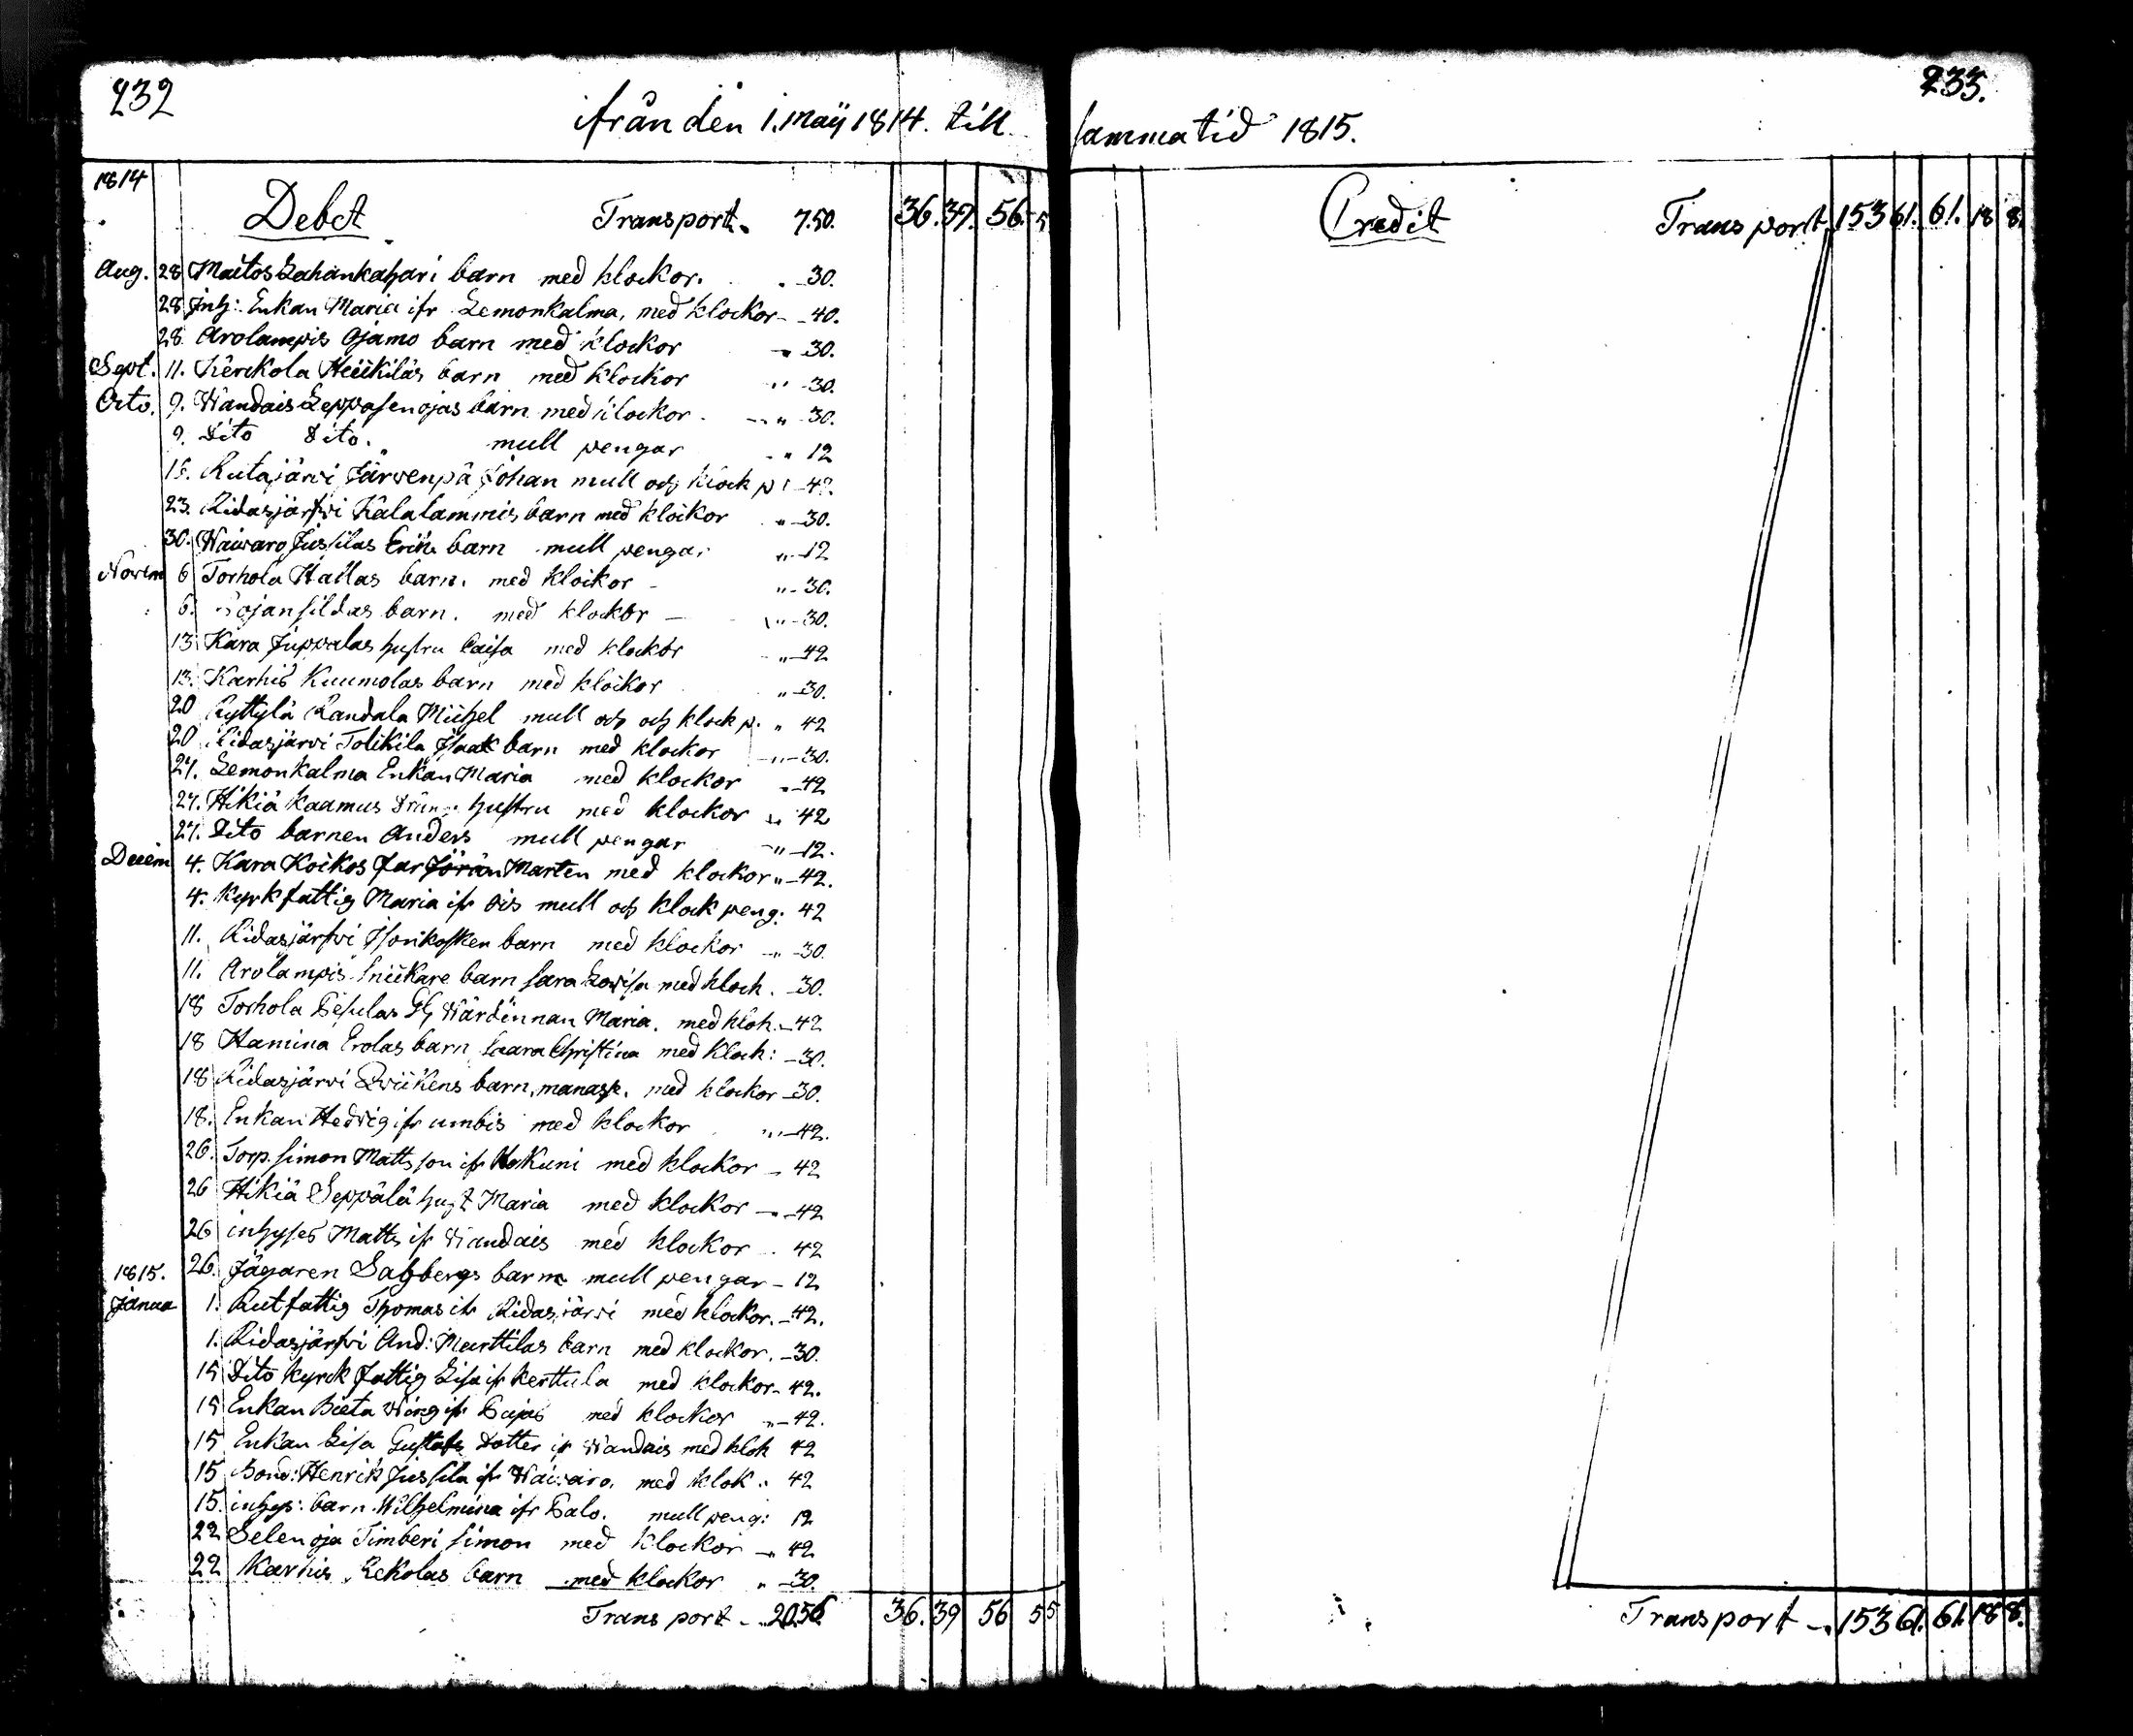 232
ifrån den 1. Maij 1814. till
1814
Debet Transport. 7.50. 36. 39. 56. 5
Aug. 28 Maitos Lahankahari barn med klockor. 30.
28 Inh: Enkan Maria ifr Lemonkalma, med klockor - 40.
28. Arolampis Ojamo barn med klockor " 30.
Sept. 11. Kerckola Heikiläs barn med klockor " 30.
Octo. 9. Wandais Leppäsenojas barn med klockor " 30.
9. Dito Dito. mull pengar " 12
16. Rutajärvi Järvenpä Johan mull och klock p: 42.
23. Ridasjärfvi Kalalammis barn med klockor " 30.
30. Waiwaro Jussilas Erik barn mull pengar " 12
Novem 6 Torhola Hallas barn. med klockor " 30.
6. barn. med klockor " 30.
13 Kara Juppalas hustru Caisa med klockor " 42
13. Karhis Kuumolas barn med klockor " 30.
20 Ryttylä Randala Michel mull och och klock p. " 42
20 Ridasjärvi Tolikila Isaak barn med klockor " 30.
27. Lemonkalma Enkan Maria med klockor " 42
27. Hikiä Kaamus Dräng hustru med klockor " 42
27. Dito barnen Anders mull pengar " 12.
Decem 4. Kara Koikos far Jöran Marten med klockor " 42.
4. Kyrk fattig Maria ifr Ois mull och klock peng: 42
11. Ridasjärfvi barn med klockor " 30.
11. Arolampis Snickare barn Sara Lovisa med klock. 30.
18 Torhola Pesulas Gl, Wärdinnan Maria. med klok. 42
18 Hamina Erolas barn Saara Christina med klock: 30.
18 Ridasjärvi barn, manasse. med klockor 30.
18. Enkan Hedvig ifr umbis med klockor " 42.
26. Torp. Simon Mattsson ifr Kokuni med klockor - 42
26 Hikiä Seppälä hust Maria med klockor - 42
26 inhyses Matts ifr Wandais med klockor . 42
26. Jägaren Salzbergs barn mull pengar - 12
1815.
Janua 1. Rutfattig Thomas ifr Ridasjärvi med klockor. 42.
1. Ridasjärfvi And: Marttilas barn med klockor. 30.
15 Dito kyrck fattig Lisa ifr Kerttula med klockor - 42.
15 Enkan Beeta ifr med klockor " 42.
15 Enkan Lisa Gustafs Dotter ifr Wandais med klok 42
15 Bond: Henrik Jussila ifr Waiwaro. med klok: 42
15. inhys: barn Wilhelmina ifr Palo. mull peng: 12
22 Selenoja Timberi Simon med klockor - 42
22 Karhis Eckolas barn med klockor " 30.
Transport - 20.56 36. 39 56 55
233.
samma tid 1815.
Credit Transport 153 61. 61. 18 8.
Transport - 153 61. 61. 18 8.